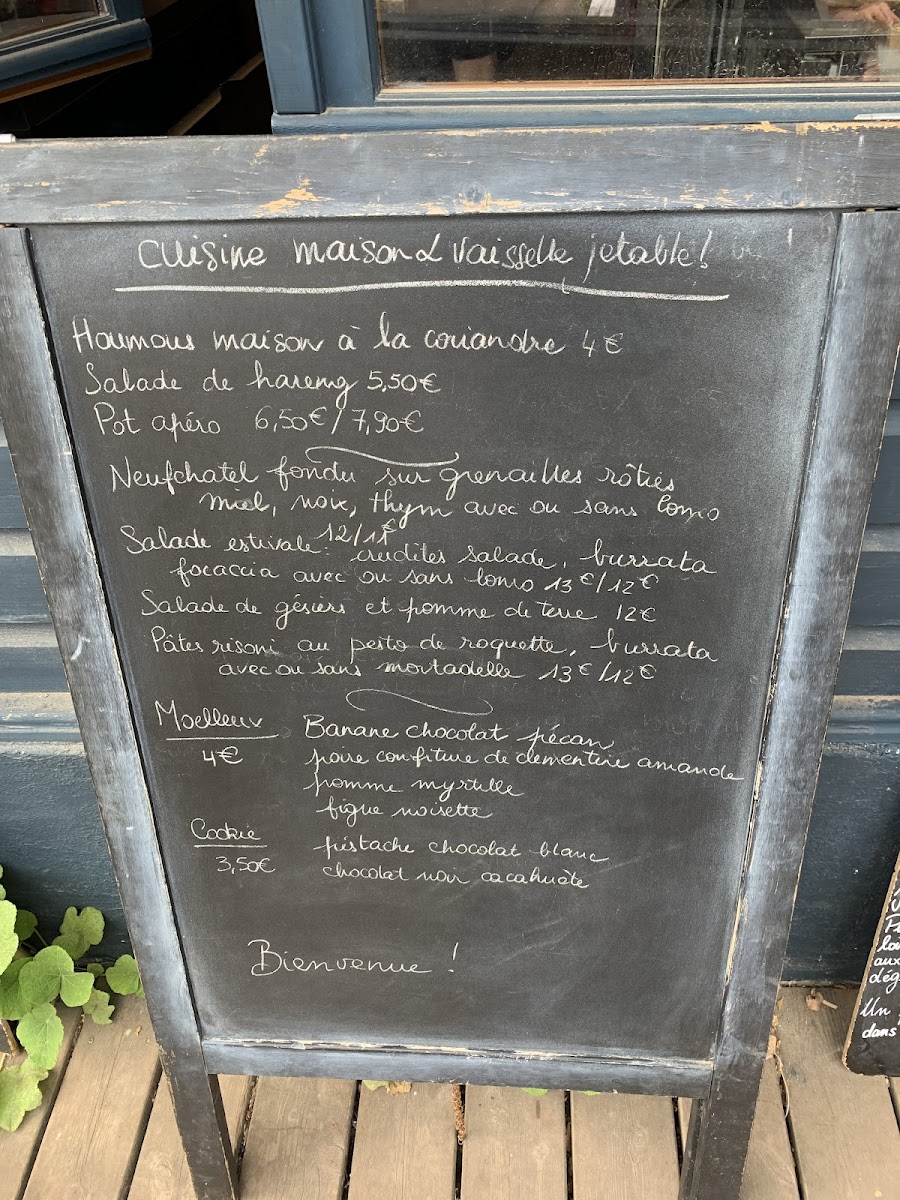 cuisine maison & vaisselle jetable!
Houmous maison à la coriandre 4€
Salade de hareng 5,50€
Pot apéro 6,50€/7,90€
Neufchatel fondu sur grenailles rôties
miel, noix, thym avec ou sans lomo
12/11€
Salade estivale: crudites salade, burrata
focaccia avec ou sans lomo 13€/12€
Salade de gésiers et pomme de terre 12€
Pâtes risoni au pesto de roquette, burrata
avec ou sans mortadelle 13€/12€
Moelleux Banane chocolat pécan
4€ poire confiture de clementine amande
pomme myrtille
figue noisette
Cookie pistache chocolat blanc
3,50€ chocolat noir cacahuète
Bienvenue !
aux
Un
dans